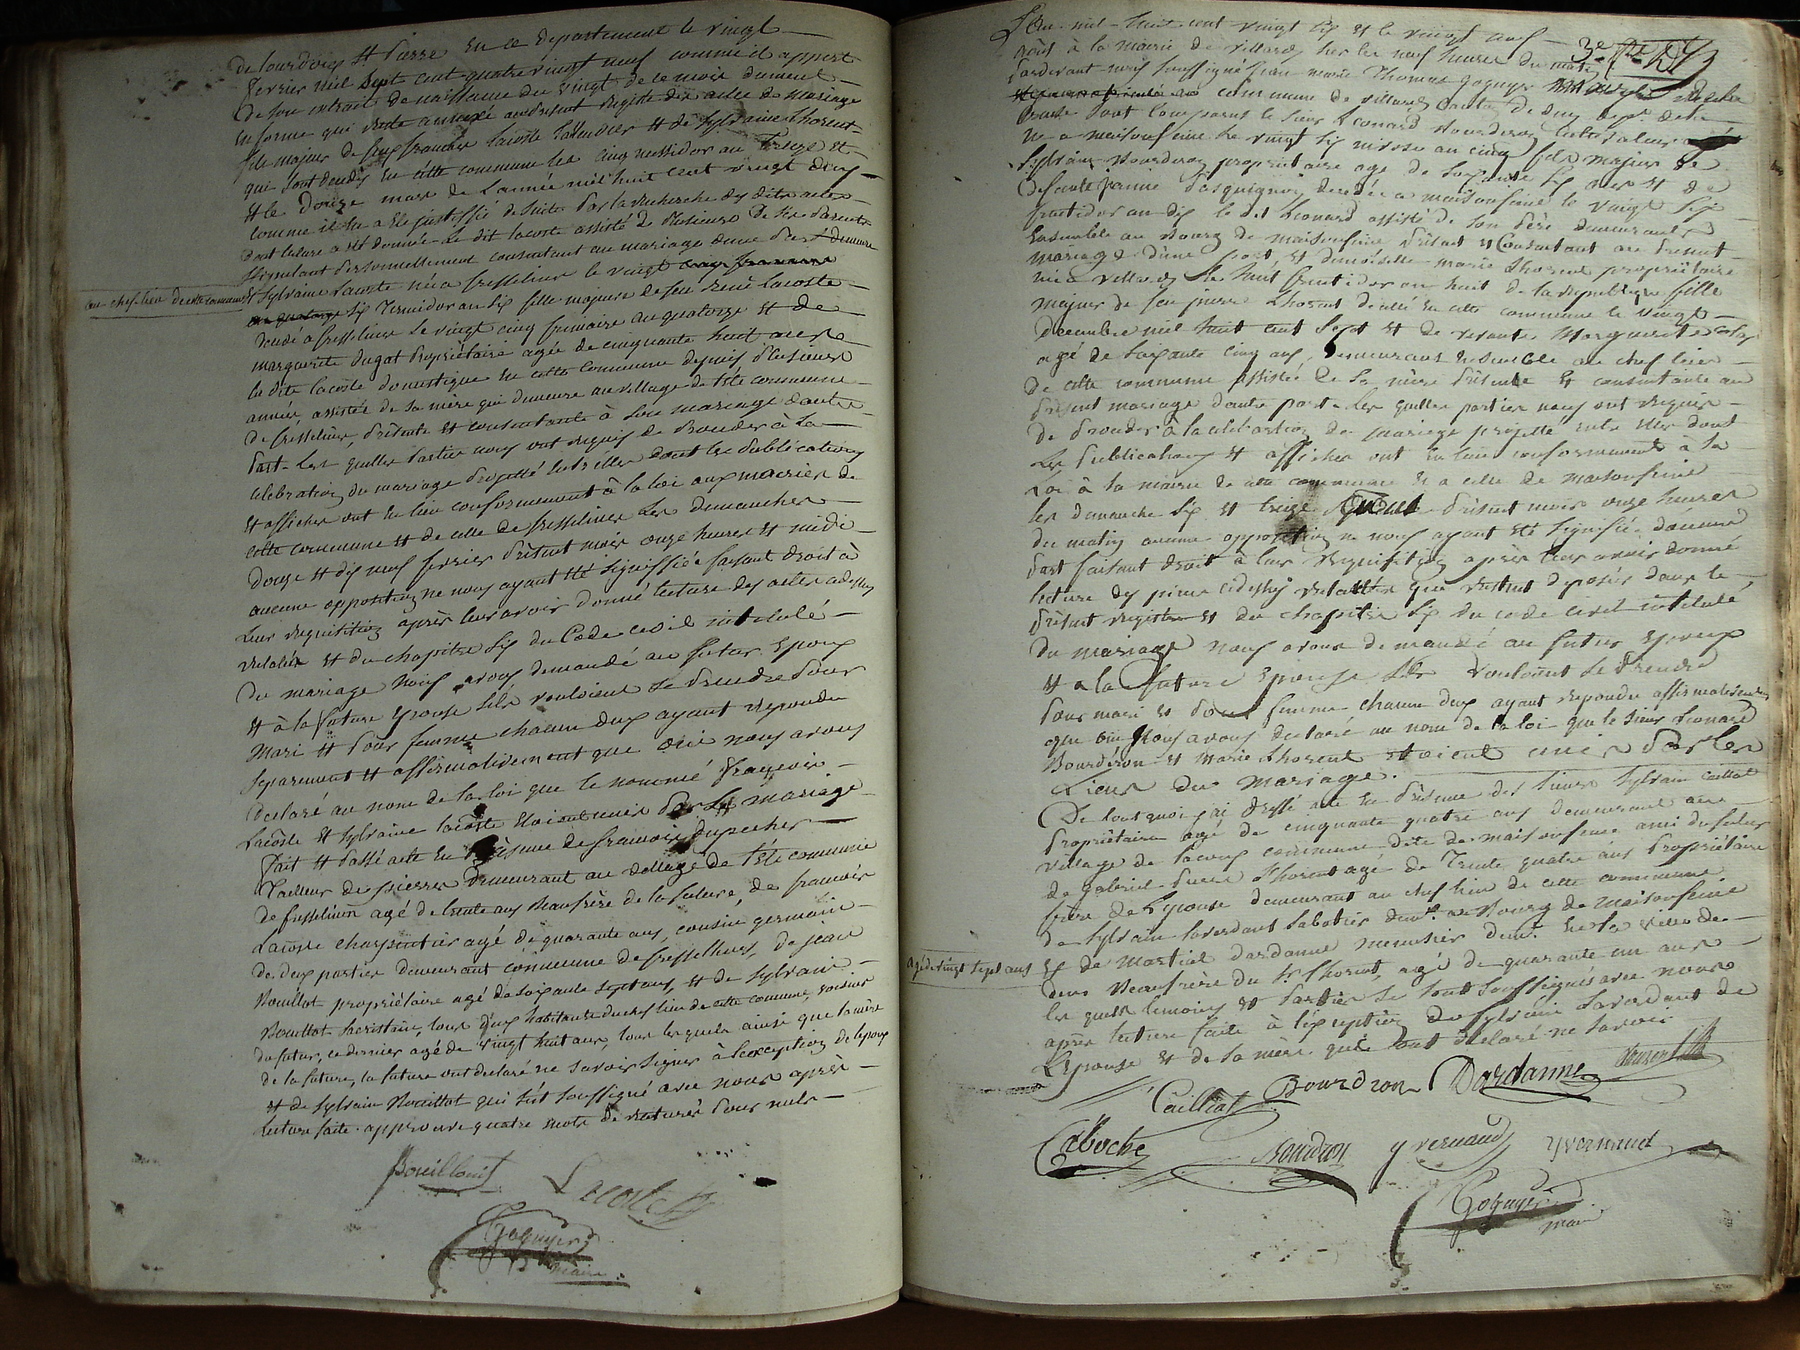 de lourdoueix St pierre en ce departement le vingt
fevrier mil sept cent quatre vingt neuf comme il appert
de son extrait de naissance du vingt de ce mois dument
en forme qui reste annexé au present registre des actes de mariage
fils majeur de feu francois lacoste et de sylvaine thorent
qui sont decedés en cette commune les cinq messidor an treize et
et le douze mars de l'année mil huit cent vingt deux
comme il me a été justiffié de suite par la recherche des dits actes
dont lecture a été donnée. Le dit lacoste assisté de plusieurs de ses parents
stipulant personnellement consentant au mariage d'une part demeure
au chef lieu de cette commune
et sylvaine lacoste née a fresseline le vingt
six thermidor an six fille majeure de feu rené lacoste
decedé a fresseline le vingt cinq frimaire an quatorze et de
marguerite dugat propriétaire agée de cinquante huit ans
la dite lacoste domestique en cette commune depuis plusieurs
années assistée de sa mère qui demeure au village de commune
de fresseline, présente et consentante à son mariage d'autre
part. Les quelles parties nous ont requis de proceder à la
celebration du mariage projetté entr'elles dont les publications
et affiches ont eu lieu conformement à la loi aux mairies de
cette commune et de celle de fresselines les dimanches
douze et dix neuf fevrier présent mois onze heures et midi
aucune opposition ne nous ayant été signiffiée faisant droit à
leur requisition après leur avoir donné lecture des actes cidessus
relatés et du chapitre six du Code civil intitulé
du mariage nous avons demandé au futur epoux
et à la future epouse s'ils vouloient se prendre pour
mari et pour femme chacun d'eux ayant repondu
separement et affirmativement que oui nous avons
declaré au nom de la loi que le nommé francois
Lacoste et sylvaine lacoste etoient unis par le mariage
fait et passé acte en présence de francois dupecher
tailleur de pierres demeurant au village de commune
de fresselines agé de trente ans beaufrère de la future, de francois
Lacoste charpentier agé de quarante ans, cousin germain
de deux parties demeurant commune de fresselines, de jean
Bouillot propriétaire agé de soixante sept ans, et de sylvain
Bouillot sacristain, tous deux habitants du chef lieu de cette commune, voisins
du futur, ce dernier agé de vingt huit ans, tous lesquels ainsi que la mère
de la future, la future ont declaré ne savoir signer à l'exception de l'epoux
et de sylvain Bouillot qui s'est soussigné avec nous après
lecture faite. approuvé quatre mots de raturés pour nuls
Bouillout Lacoste
Goguyer
maire
L'an mil huit cent vingt six et le vingt neuf
août à la mairie de villard les neuf heures du matin
3e
Pardevant nous soussigné jean marie Thomas goguyer maire
commune de villard canton de dun dept de la
Creuse sont comparus le sieur Léonard Bourderon
né a maisonfeine le vingt six nivose an cinq fils majeur de
sylvain Bourderon propriétaire agé de soixante six ans et de
defunte jeanne pasquignon decedée a maisonfeine le vingt six
fructidor an dix le dit Léonard assisté de son père demeurants
ensemble au Bourg de maisonfeine présent et Consentant au present
mariage d'une part, et demoiselle marie thorent propriétaire
née a villard le huit fructidor an huit de la republique fille
majeure de feu pierre thorent decedé en cette commune le vingt
decembre mil huit cent sept et de vivante Marguerite
agé de soixante cinq ans, demeurants ensemble au chef lieu
de cette commune assistée de sa mère présente et consentante au
présent mariage d'autre part. Les quelles parties nous ont requis
de proceder à la celebration du mariage projetté entre elles dont
les publications et affiches ont eu lieu conformement à la
loi à la mairie de cette commune et a celle de maisonfeine
les dimanche six et treize août présent mois onze heures
du matin aucune opposition ne nous ayant été signifiée d'aucune
part faisant droit à leur requisition après leur avoir donné
lecture des pieces cidessus relatées qui restent deposés dans le
présent registre et du chapitre six du code civil intitulé
du mariage nous avons demandé au futur epoux
et a la future epouse s'ils vouloient se prendre
pour mari et pour femme chacun d'eux ayant repondu affirmativement
que oui nous avons declaré au nom de la loi que le sieur Léonard
Bourdéron et Marie thorent etoient unis par les
Liens du mariage.
De tout quoi j'ai dressé acte en présence des sieurs sylvain caillat
Propriétaire agé de cinquante quatre ans demeurant au
village de commune dite de maisonfeine ami du futur
de gabriel pierre thorent agé de trente quatre ans propriétaire
frère de l'epouse demeurant au chef lieu de cette commune
de sylvain lavardant sabotier demt au Bourg de maisonfeine
agé de vingt sept ans
et de Martial dardanne menuisier demt en la ville de
dun beaufrère du sr thorent, agé de quarante un ans
les quels temoins et parties se sont soussignés avec nous
après lecture faite à l'exception de sylvain lavardant de
l'epouse et de sa mère qui ont declaré ne savoir
Caillat Bourdron Dardanne thorent
Caboche Bourdron yvernaud yvernaud
Goguyer
maire